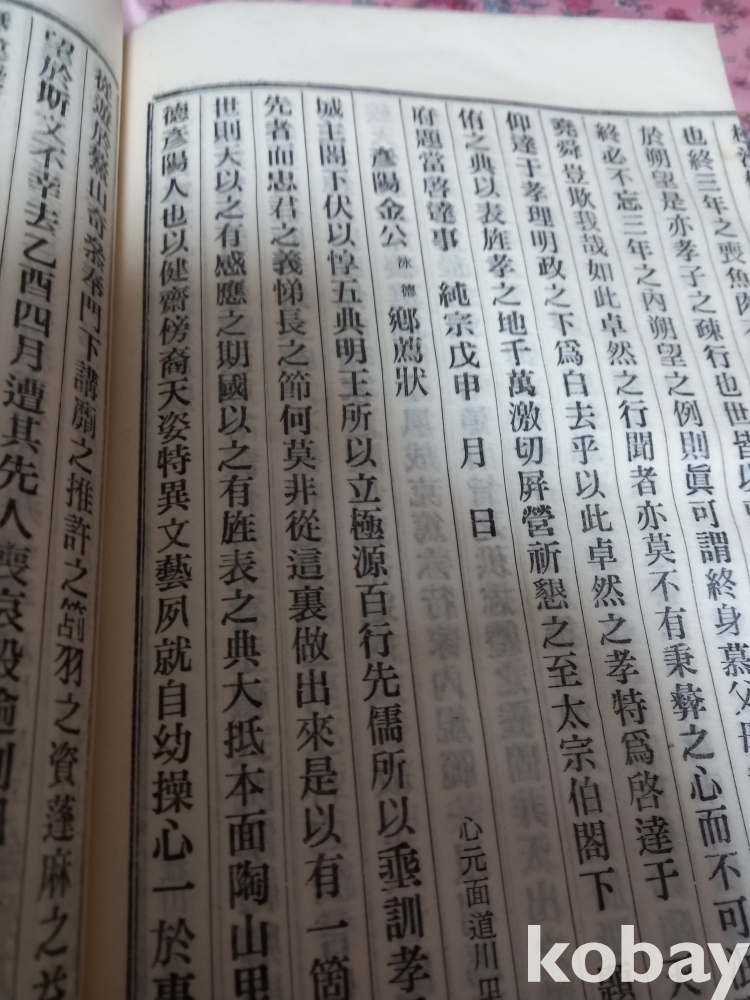 也終三年之喪魚肉
於朔望是亦孝子之疎行也世皆以
終必不忘三年之內朔望之例則眞可謂終身慕父母
堯舜豈欺我哉如此卓然之行聞者亦莫不有秉彝之心而不可
仰達于孝理明政之下爲白去乎以此卓然之孝特爲啓達于
侑之典以表旌孝之地千萬激切屛營祈懇之至太宗伯閤下
府題當啓達事 純宗戊申 月 日
彥陽金公 泳德 鄕薦狀 心元面道川里
城主閤下伏以惇五典明王所以立極源百行先儒所以垂訓孝
先者而忠君之義悌長之節何莫非從這裏做出來是以有一箇
世則天以之有感應之期國以之有旌表之典大抵本面陶山里
德彥陽人也以健齋傍裔天姿特異文藝夙就自幼操心一於事
從遊於 山奇 奉門下講 之推許之 羽之資蓬麻之
望於斯文不幸去乙酉四月遭其先人喪哀毀
kobay